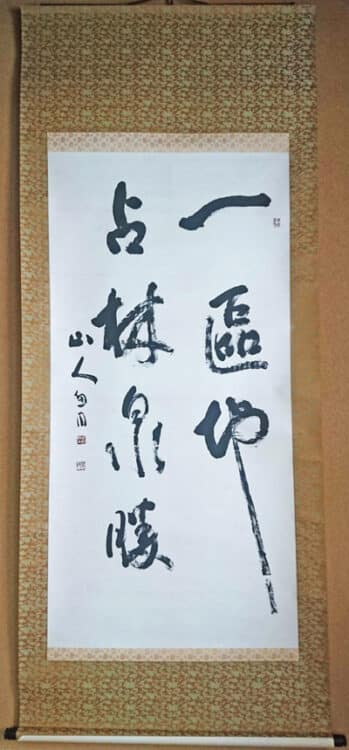 一區地
占林泉勝
山人